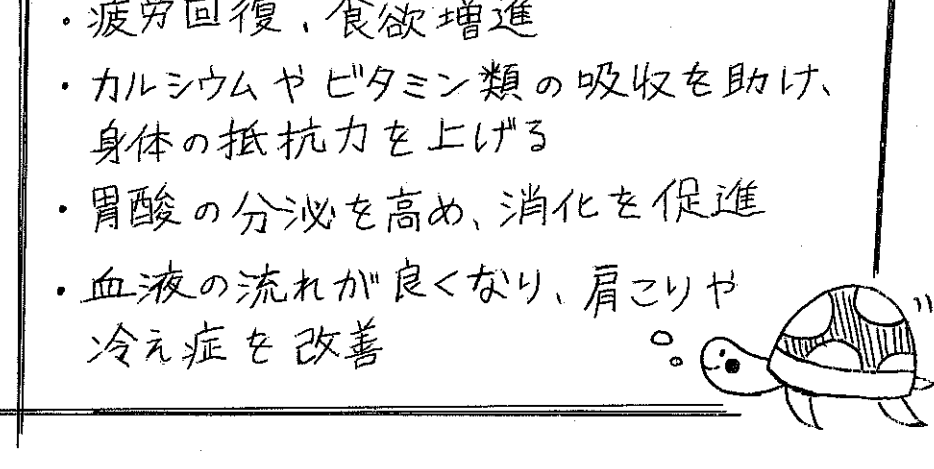 ・疲労回復、食欲増進
・カルシウムやビタミン類の吸収を助け、
身体の抵抗力を上げる
・胃酸の分泌を高め、消化を促進
・血液の流れが良くなり、肩こりや
冷え症を改善